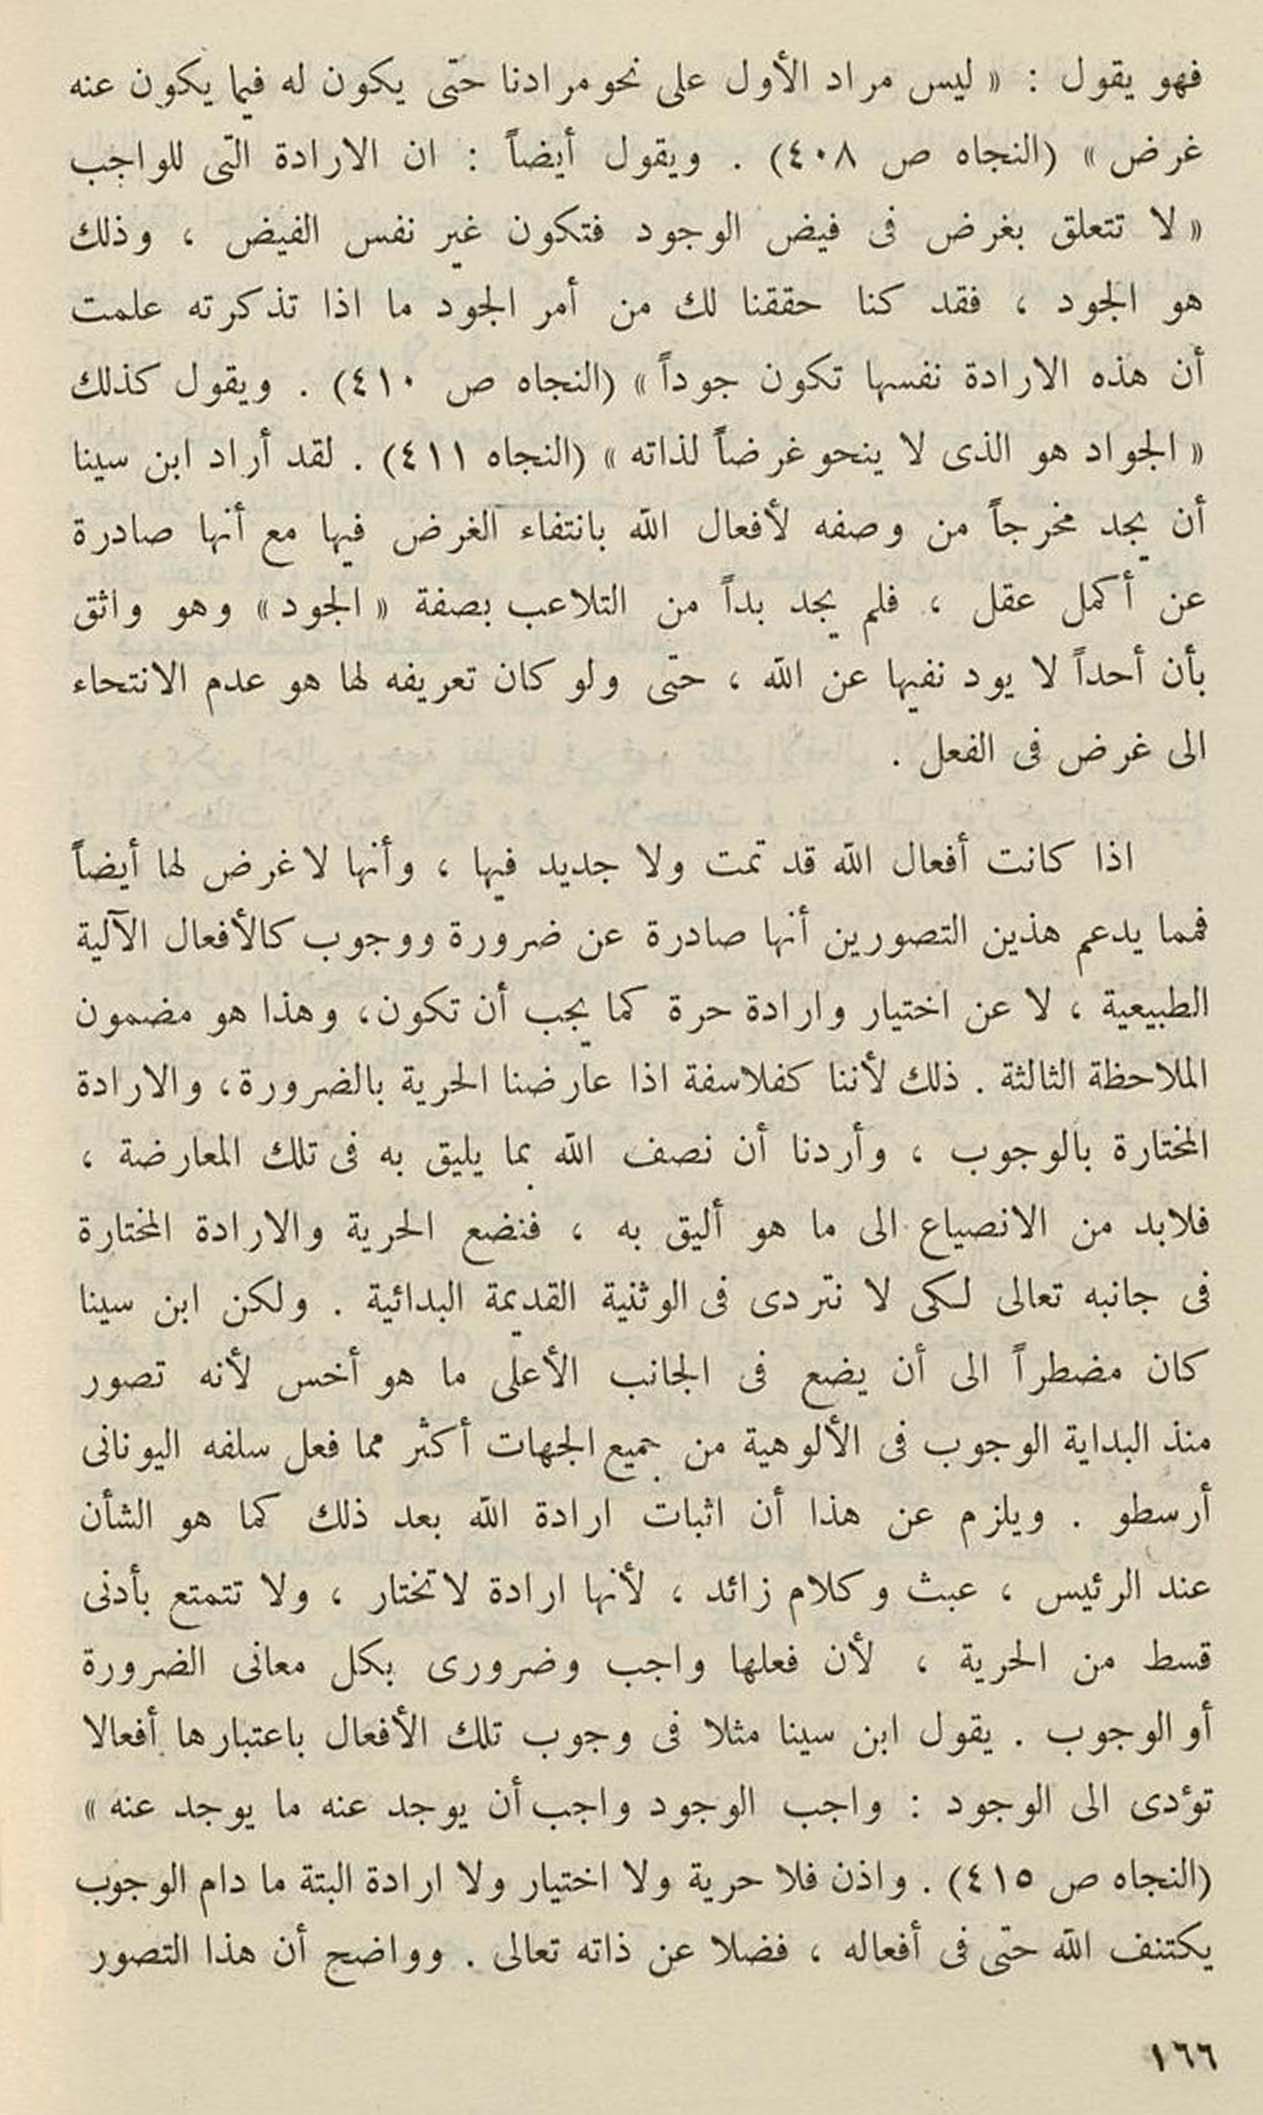 فهو يقول : « ليس مراد الأول على نحو مرادنا حتى يكون له فيما يكون عنه
غرض » (النجاه ص ٤٠٨) . ويقول أيضاً : ان الارادة التى للواجب
« لا تتعلق بغرض فى فيض الوجود فتكون غير نفس الفيض ، وذلك
هو الجود ، فقد كنا حققنا لك من أمر الجود ما اذا تذكرته علمت
أن هذه الارادة نفسها تكون جوداً » (النجاه ص ٤١٠) . ويقول كذلك
« الجواد هو الذى لا ينحو غرضاً لذاته » (النجاه ٤١١) . لقد أراد ابن سينا
أن يجد مخرجاً من وصفه لأفعال الله بانتفاء الغرض فيها مع أنها صادرة
عن أكمل عقل ، فلم يجد بداً من التلاعب بصفة « الجود » وهو واثق
بأن أحداً لا يود نفيها عن الله ، حتى ولو كان تعريفه لها هو عدم الانتحاء
الى غرض فى الفعل .
اذا كانت أفعال الله قد تمت ولا جديد فيها ، وأنها لا غرض لها أيضاً
فمما يدعم هذين التصورين أنها صادرة عن ضرورة ووجوب كالأفعال الآلية
الطبيعية ، لا عن اختيار وارادة حرة كما يجب أن تكون، وهذا هو مضمون
الملاحظة الثالثة . ذلك لأننا كفلاسفة اذا عارضنا الحرية بالضرورة، والارادة
المختارة بالوجوب ، وأردنا أن نصف الله بما يليق به فى تلك المعارضة ،
فلابد من الانصياع الى ما هو أليق به ، فنضع الحرية والارادة المختارة
فى جانبه تعالى لكى لا نتردى فى الوثنية القديمة البدائية . ولكن ابن سينا
كان مضطراً الى أن يضع فى الجانب الأعلى ما هو أخس لأنه تصور
منذ البداية الوجوب فى الألوهية من جميع الجهات أكثر مما فعل سلفه اليونانى
أرسطو . ويلزم عن هذا أن اثبات ارادة الله بعد ذلك كما هو الشأن
عند الرئيس ، عبث وكلام زائد ، لأنها ارادة لا تختار ، ولا تتمتع بأدنى
قسط من الحرية ، لأن فعلها واجب وضرورى بكل معانى الضرورة
أو الوجوب . يقول ابن سينا مثلا فى وجوب تلك الأفعال باعتبارها أفعالا
تؤدى الى الوجود : واجب الوجود واجب أن يوجد عنه ما يوجد عنه »
(النجاه ص ٤١٥) . واذن فلا حرية ولا اختيار ولا ارادة البتة ما دام الوجوب
يكتنف الله حتى فى أفعاله ، فضلا عن ذاته تعالى . وواضح أن هذا التصور
١٦٦